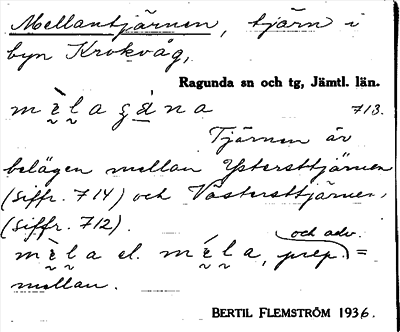 Mellantjärnen, tjärn i
byn Krokvåg,
Ragunda sn och tg, Jämtl. län.
mèla gàna 713.
Tjärnen är
belägen mellan Yttersttjärnen
(siffr. 714) och Västersttjärnen,
(siffr. 712).
och adv.
mèla el. méla, prep. =
mellan.
BERTIL FLEMSTRÖM 1936.